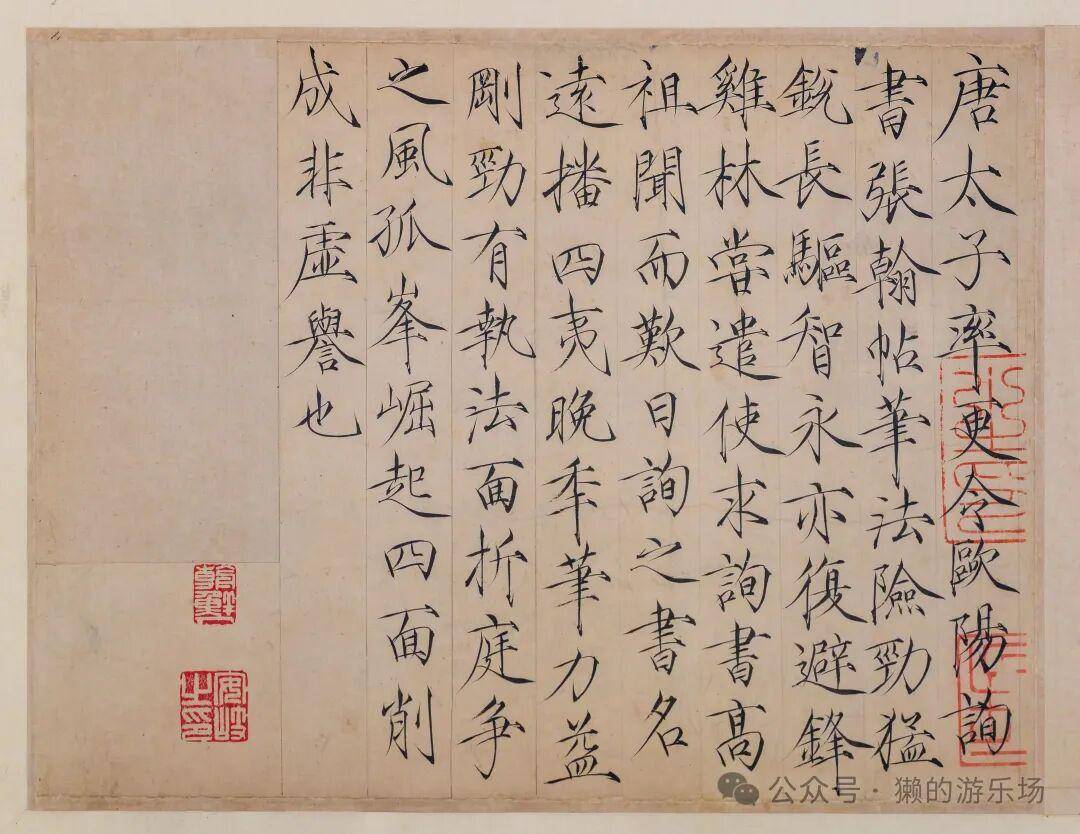 唐太子率更令歐陽詢
書張翰帖筆法險勁猛
銳長驅智永亦復避鋒
雞林嘗遣使求詢書高
祖聞而歎曰詢之書名
遠播四夷晚年筆力益
剛勁有執法面折庭爭
之風孤峯崛起四面削
成非虛譽也
朝鮮人
安岐之印
公众号·獭的游乐场